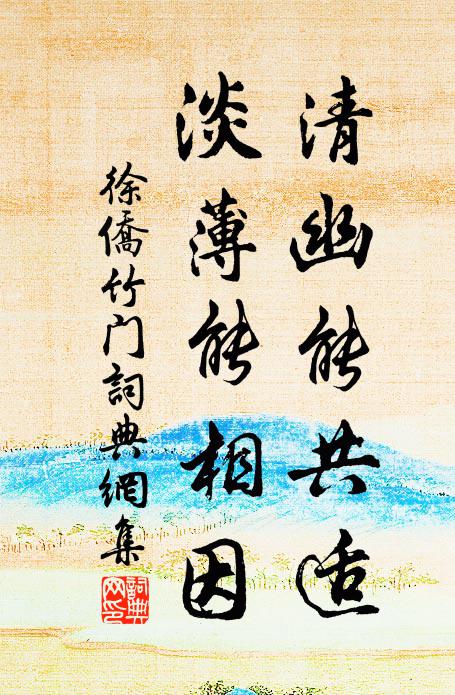 清幽能共适
淡薄能相因
徐僑竹门詞典網集
詞典
网印